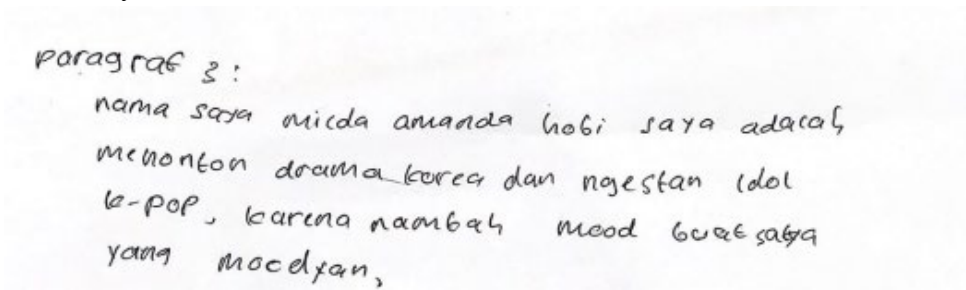 paragraf 3 :
nama saya milda amanda hobi saya adalah
menonton drama korea dan ngestan idol
k-pop, karena nambah mood buat saya
yang moodyan,